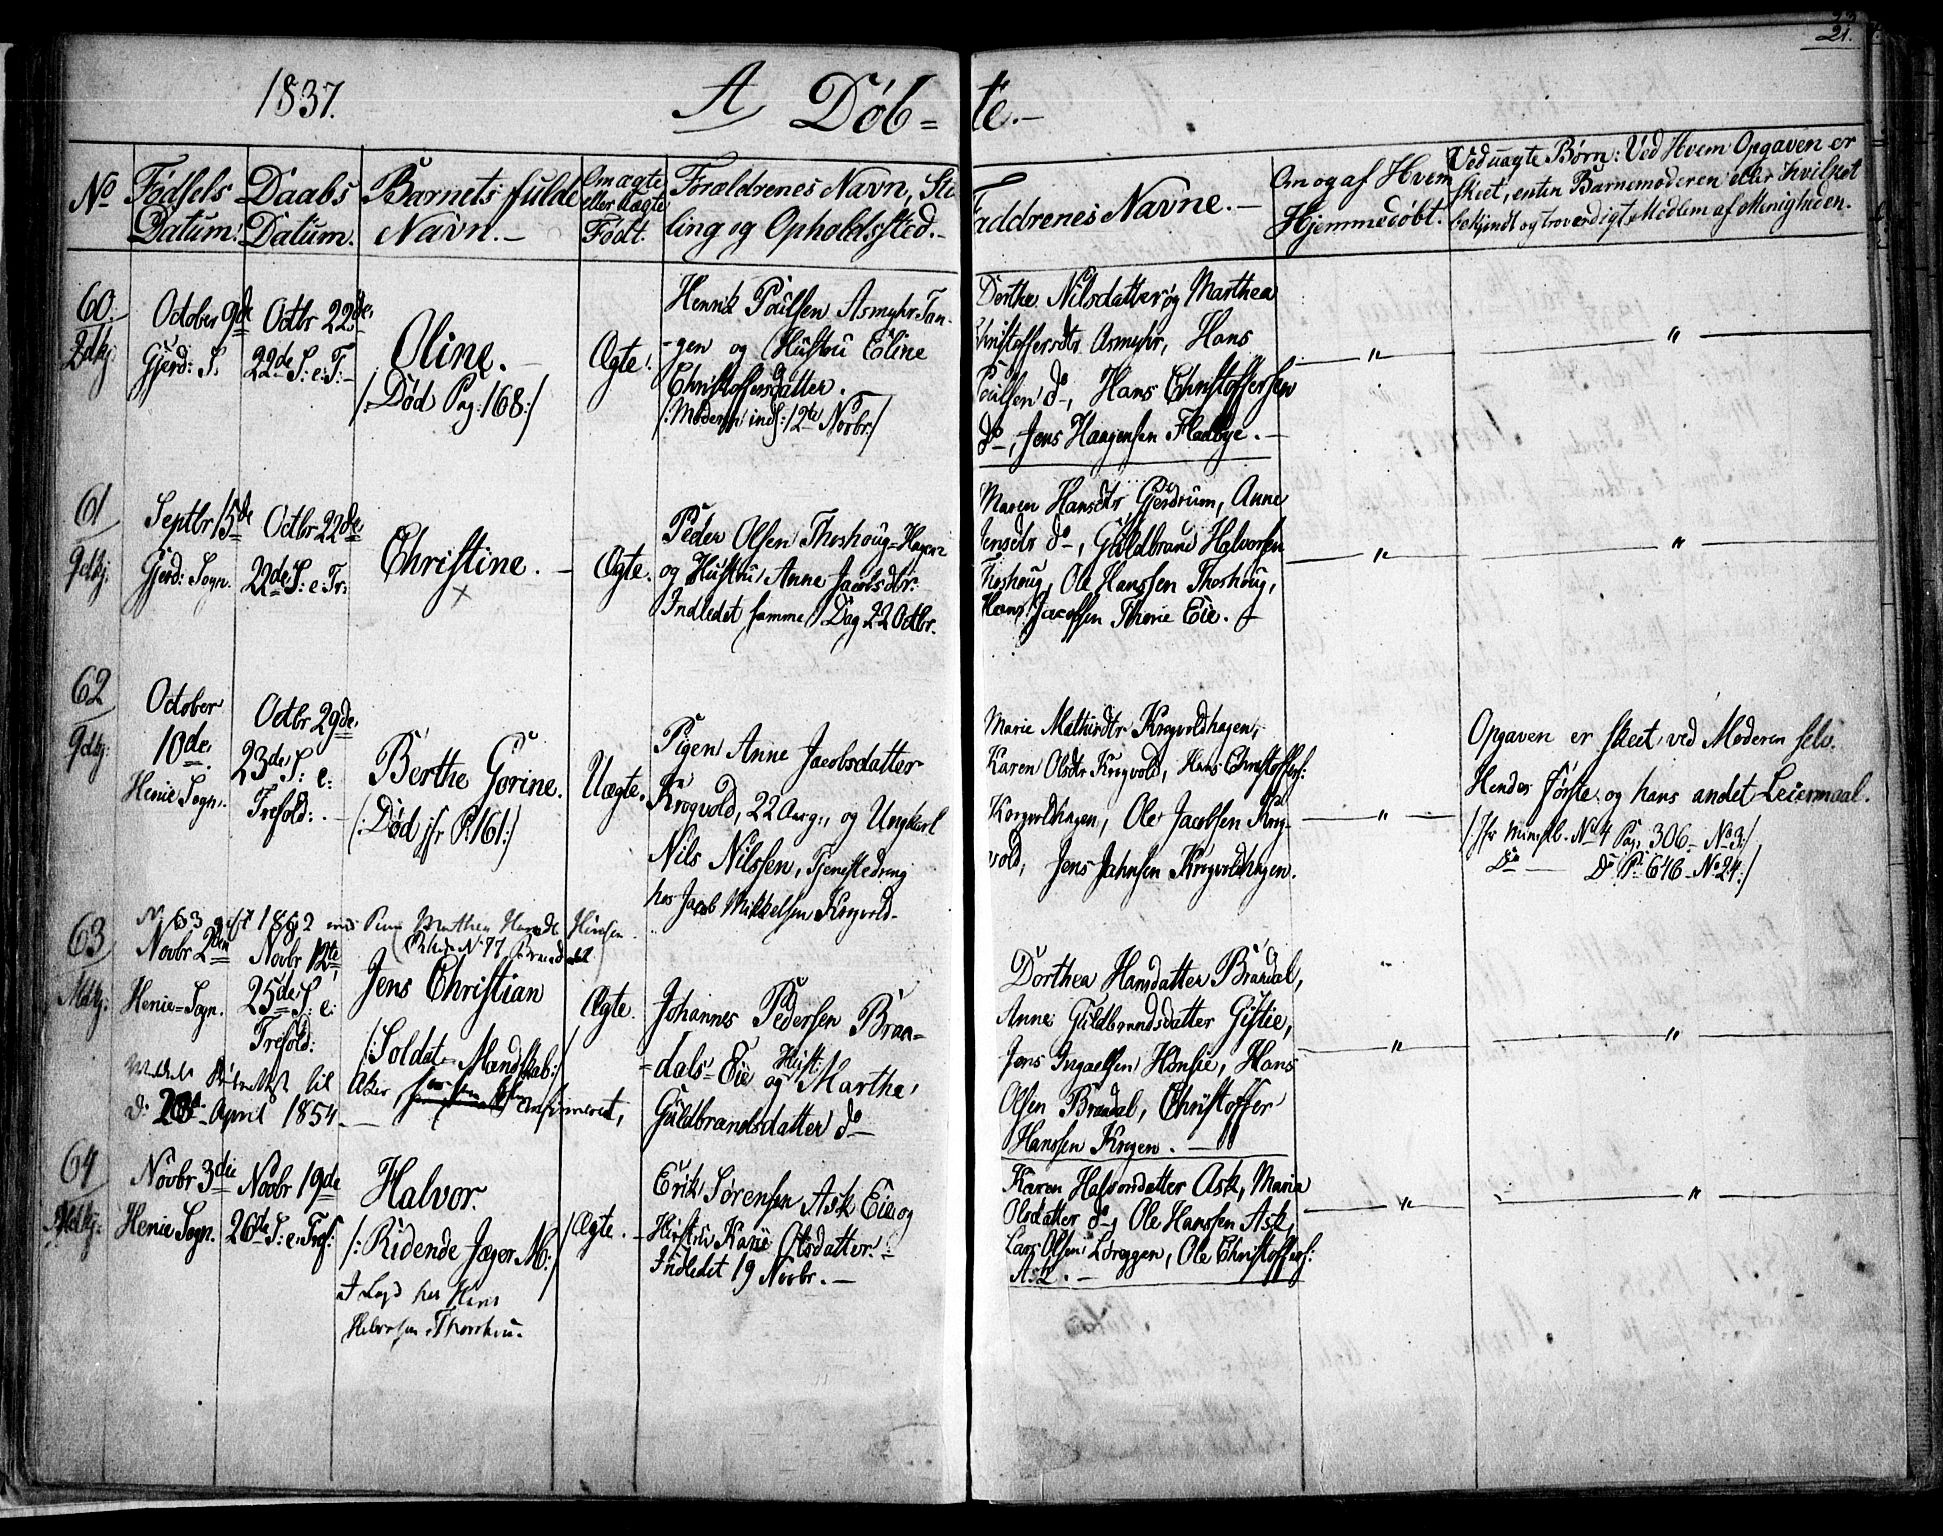 21.
1837.
A Döb=te.-
No
Födsels Datum.
Daabs Datum.
Barnets fulde Navn.-
Om ægte eller Uægte Födt.
Forældrenes Navn, Stilling og Opholdssted.-
Faddrenes Navne.-
Om og af Hvem Hjemmedöbt.
Ved uægte Börn: Ved Hvem Opgaven er
skeet, enten Barnemoderen eller hvilket
bekjendt og troværdigt Medlem af Menigheden.
60.
October 9de
Gjerd: S.
Octbr 22de
22de S: e: T:-
Oline.-
/:Död Pag: 168:/
Ægte.
Henrik Poulsen Asmyhr Tan-
gen og Hustru Eline
Christoffersdatter.-
/:Moderen inds: 12te Novbr:/
Dorthe Nilsdatter og Marthea
Christoffersdtr Asmyhr, Hans
Poulsen do-, Hans Christoffersen
do-, Jens Haagensen Fladbye.-
- " -
"
61
Septbr 15de
Gjerd: Sogn.
Octbr 22de
22de S: e: Tr:
Christine.-
x
Ægte.
Peder Olsen Thoshoug=Hagen
og Hustru Anne Jacobsdtr.
Indledet samme Dag 22 Octbr.
Maren Hansdtr Gjerdrum, Anne
Jensdtr do-, Guldbrand Halvorsen
Thoshoug, Ole Hanssen Thoshoug,
Hans Jacobsen Eie.
- " -
"
62
October
10de
Henie Sogn.
Octbr 29de
23de S: e:
Trefold:.-
Berthe Gorine.
(:Död jfr P. 161:)
Uægte.
Pigen Anne Jacobsdatter
Krogvold, 22 Aar g:, og Ungkarl
Nils Nilssen, Tjenestedreng
hos Jacob Mikkelsen Krogvold-
Marie Mathisdtr Krogvoldhagen,
Karen Olsdtr Krogvold, Hans Christoffers:
Krogvoldhagen, Ole Jacobsen Krog-
vold, Jens Jahnsen Krogvoldhagen.
- " -
Opgaven er skeet ved Moderen selv.
Hendes förste og hans andet Leiermaal.
/:Jfr Minstb. No 4 Pag. 306- No 3:/
Do - Do P: 646- No 24:/
63
No 63 gift 1862 med Pige Marthea
Novbr 2den
Henie=Sogn.
Novbr 12te
25de S: e:
Trefold:
Jens Christian
/:Soldat=Mandskab:/
Aker
til
d: April 1854.-
Ægte.
Johannes Pedersen Bran-
dals=Eie og Hust: Marthe
Guldbrandsdatter do-
Dorthea Hansdatter Brandal,
Anne Guldbrandsdatter Gistie,
Jens Hönsie, Hans
Olsen Brandal, Christoffer
Hanssen Krogen.-
- " -
"
64
Novbr 3die
Henie Sogn.
Novbr 19de
26de S: e: Tref:
Halvor.
/:Ridende Jæger M:/
Ægte.-
Erik Sörensen Ask Eie og
Hustru Karie Olsdatter.-
Indledet 19 Novbr.-
Karen Halvorsdatter Ask, Maria
Olsdatter do-, Ole Hanssen Ask,
Lars Olsen Löreggen, Ole Christoffers:
Ask.-
- " -
"